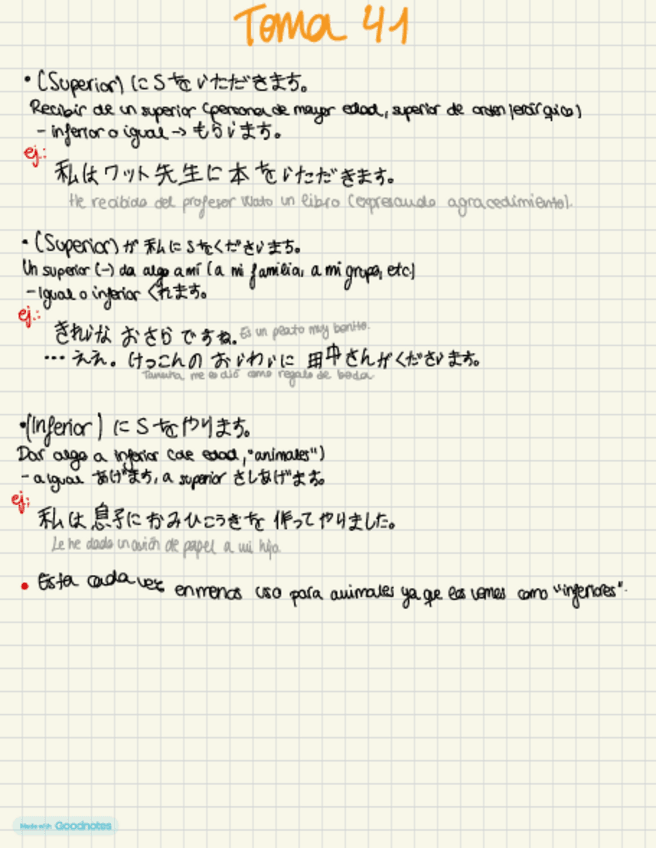 Tema 41
• (Superior) に S を いただきます。
Recibir de un superior (persona de mayor edad, superior de orden jerárgico)
- inferior o igual → もらいます。
ej:
私はワット先生に本をいただきます。
He recibido del profesor Wato un libro (expresando agracedimiento).
• (Superior) が 私に Sをくださいます。
Un superior (-) da algo a mí (a mi familia, a mi grupo, etc)
- Igual o inferior くれます。
ej.:
きれいな おさら ですね. Es un plato muy bonito.
... ええ。けっこんの おいわいに 田中さんがくださいます。
Tanaka me dió como regalo de boda
• (Inferior) に Sをやります。
Dar algo a inferior (de edad, "animales")
- a igual あげます, a superior さしあげます。
ej:
私は息子にかみひこうきを 作ってやりました。
Le he dado un avión de papel a mi hijo.
• Esta cada vez en menos uso para animales ya que los vemos como "inferiores".
Made with Goodnotes